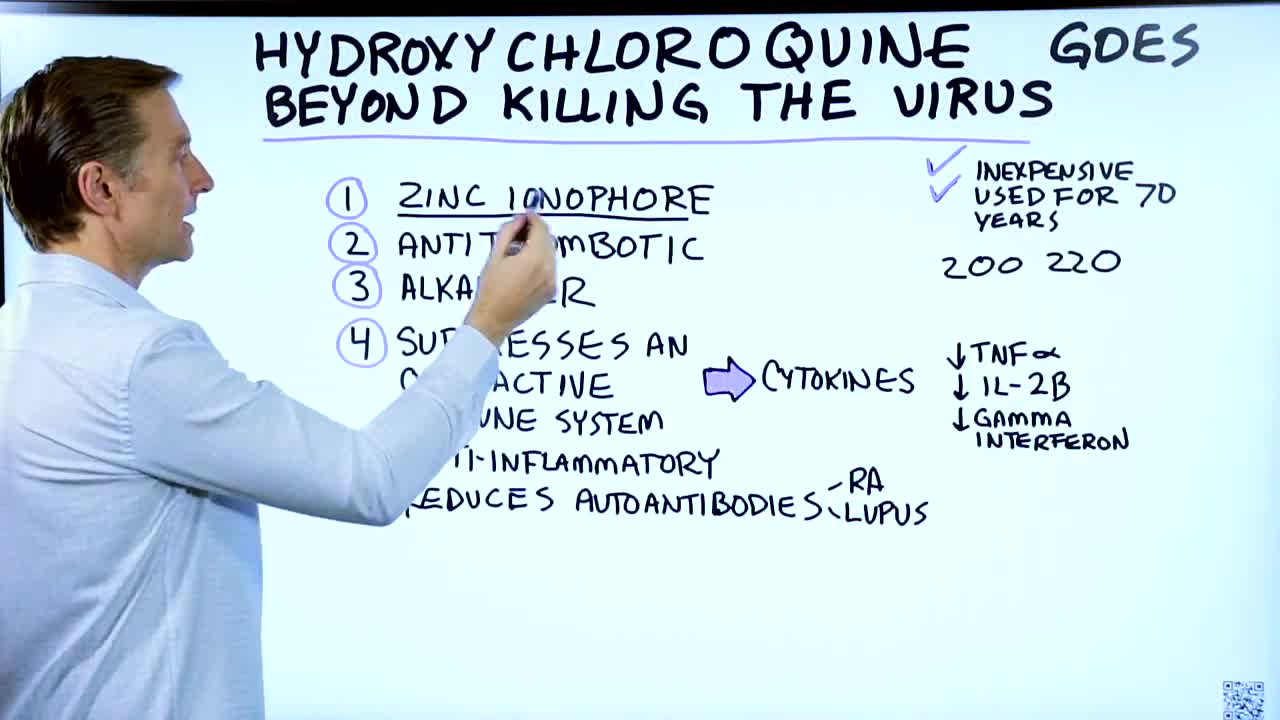 HYDROXYCHLOROQUINE GOES
BEYOND KILLING THE VIRUS
1 ZINC IONOPHORE
2 ANTITHROMBOTIC
3
4 SUPPRESSES AN
OVERACTIVE
IMMUNE SYSTEM
ANTI-INFLAMMATORY
REDUCES AUTOANTIBODIES
RA
LUPUS
CYTOKINES
↓ TNF α
↓ IL-2B
↓ GAMMA
INTERFERON
✓ INEXPENSIVE
✓ USED FOR 70
YEARS
200 220